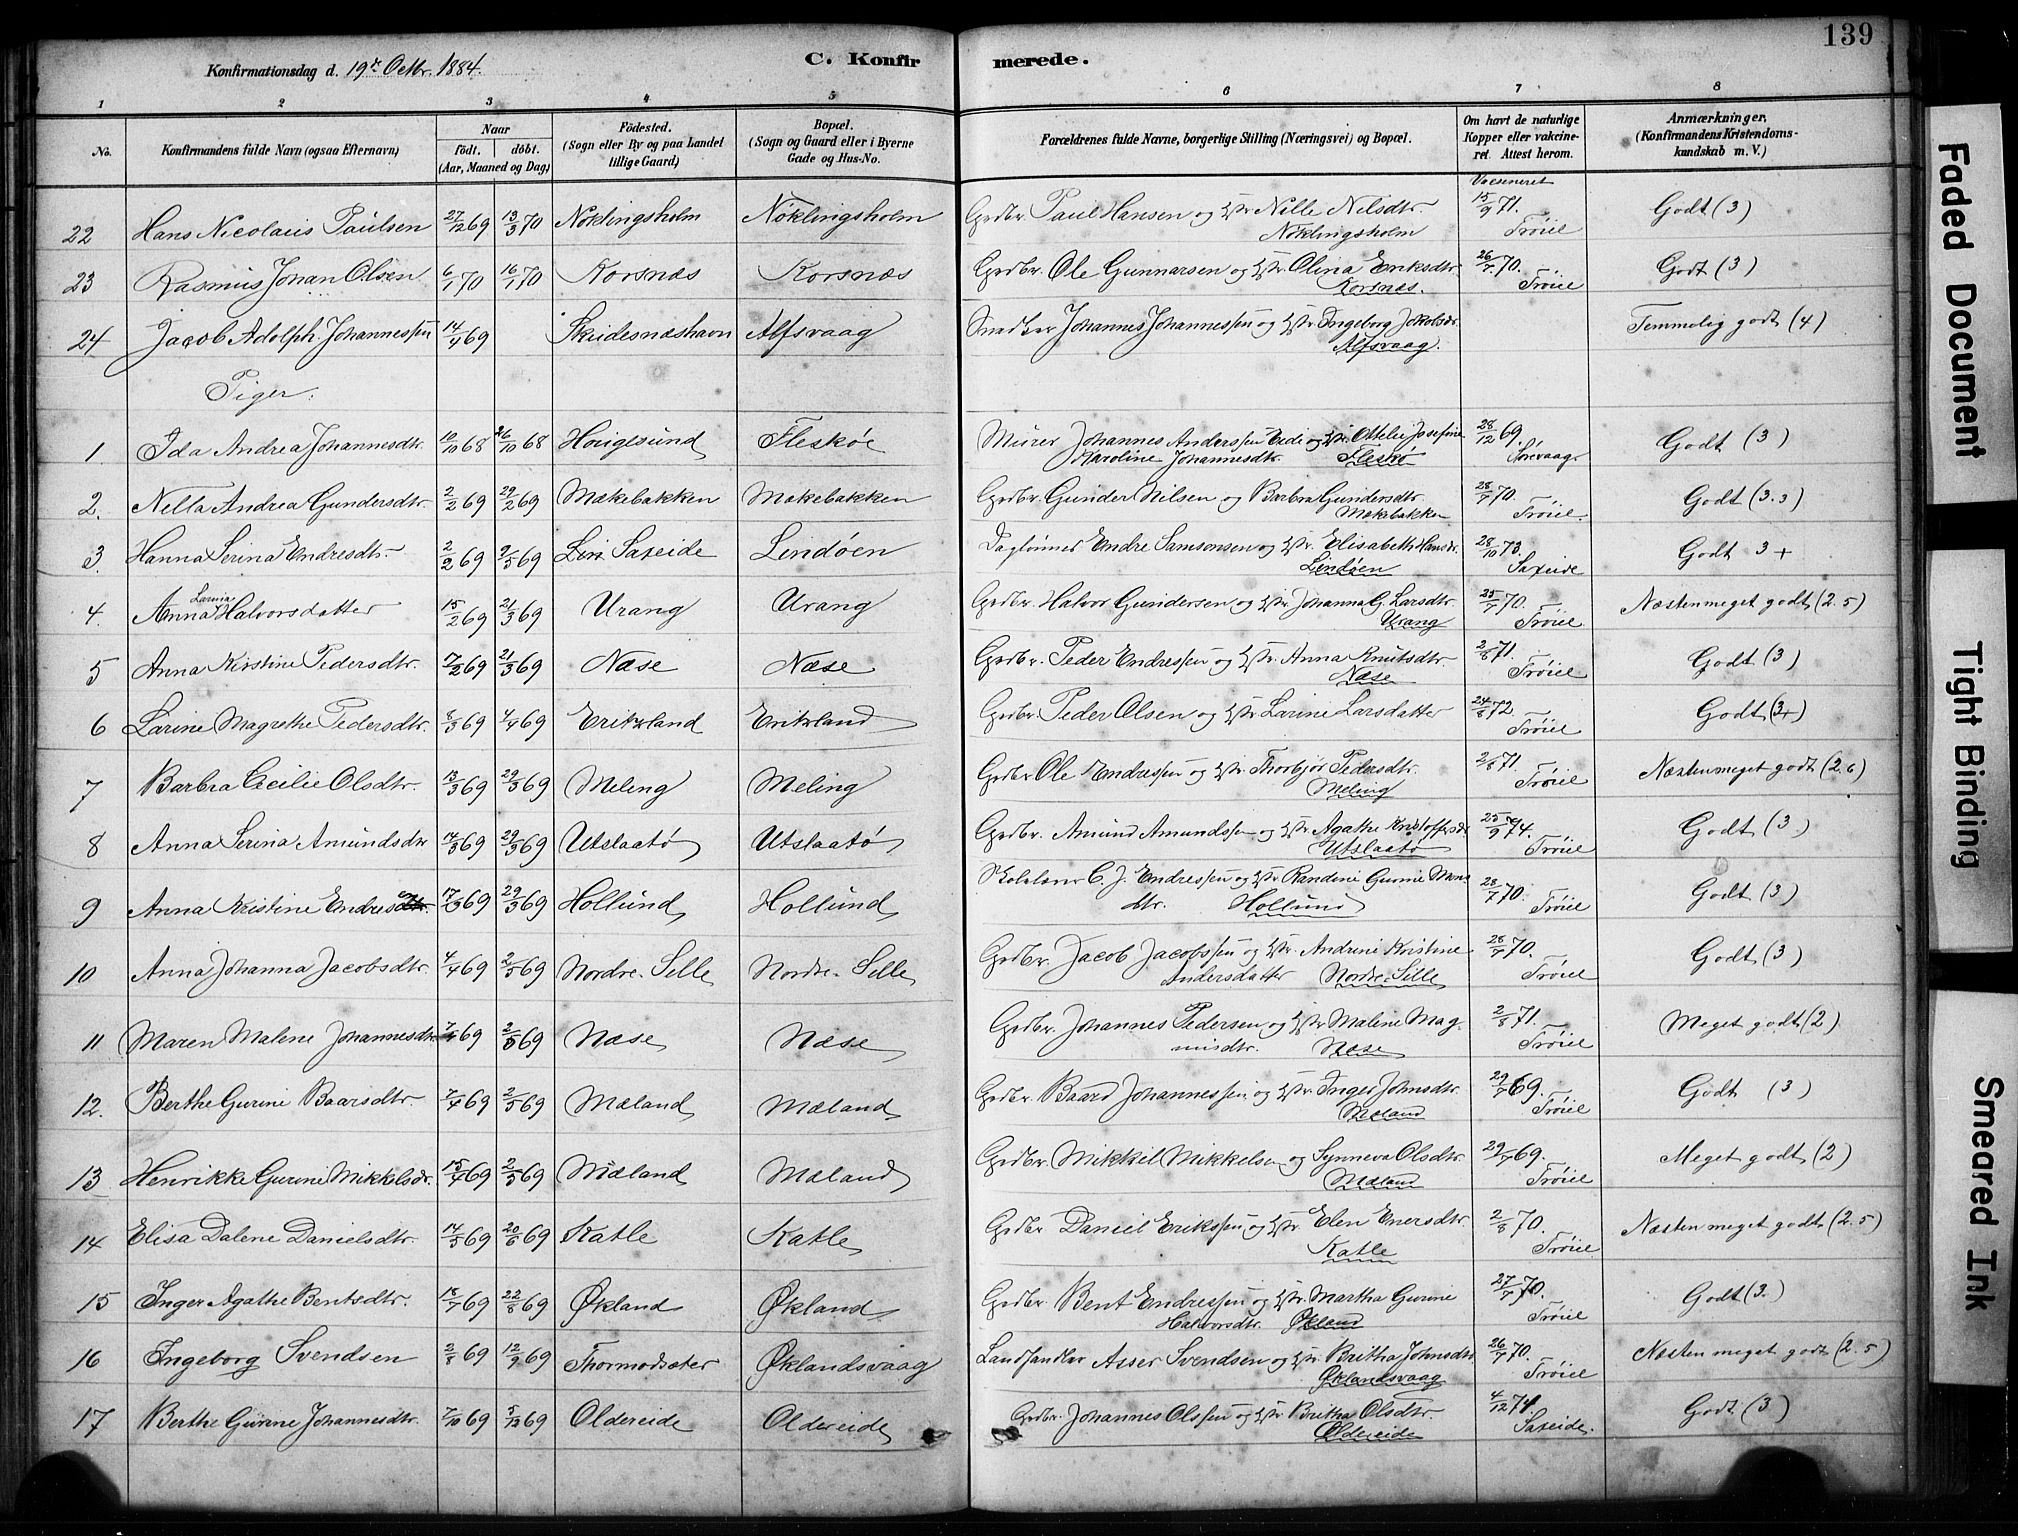 139
Konfirmationsdag d. 19de Octbr. 1884.
C. Konfirmerede.
1 2 3 4 5 6 7 8
No. Konfirmandens fulde Navn (ogsaa Efternavn) Naar födt. döbt. (Aar, Maaned og Dag) Födested. (Sogn eller By og paa Landet tillige Gaard) Bopæl. (Sogn og Gaard eller i Byerne Gade og Hus-No. Forældrenes fulde Navne, borgerlige Stilling (Næringsvei) og Bopæl. Om havt de naturlige Kopper eller vakcineret. Attest herom. Anmærkninger. (Konfirmandens Kristendomskundskab m. V.)
22 Hans Nicolaus Paulsen 27/12 69 13/3 70 Nöklingsholm Nöklingsholm Grdbr. Paul Hansen og Hstr. Nille Nilsdtr. Nöklingsholm Vaccineret 15/9 71. Tröiel Godt (3)
23 Rasmus Johan Olsen 6/1 70 16/1 70 Korsnæs Korsnæs Grdbr. Ole Gunnarsen og Hstr. Olina Eriksdtr. Korsnæs. 26/7 70. Tröiel Godt (3)
24 Jacob Adolph Johannessen 14/4 69 Skudesnæshavn Alfsvaag Snedker Johannes Johannessen og Hstr. Ingeborg Jakobsdr. Alfsvaag. Temmelig godt (4)
Piger.
1. Ida Andrea Johannesdtr. 10/10 68 26/10 68 Hougesund Fleskøe Murer Johannes Anderssen Eide og Hstr. Ottelie Josefine Karoline Johannesdtr. Fleskø 28/12 69. Sörevaag Godt (3)
2. Nella Andrea Gundersdtr. 2/2 69 29/2 69 Mækebakken Mækebakken Grdbr. Gunder Nilsen og Barbra Gundersdtr. Mækebakken 28/7 70. Tröiel. Godt (3.3)
3. Hanna Serina Endresdtr. 2/2 69 9/5 69 Saxeide Lindöen Daglønner Endre Samsonsen og Hstr. Elisabeth Hansdr. Lindöen 28/10 73. Saxeide Godt 3+
4. Anna Larnia Halvorsdatter 15/2 69 21/3 69 Urang Urang Grdbr. Halvor Gundersen og Hstr. Johanna G. Larsdtr. Urang 25/7 70. Tröiel Næsten meget godt (2.5)
5 Anna Kirstine Pedersdtr. 7/2 69 21/3 69 Næse Næse Grdbr. Peder Endressen og Hstr. Anna Knutsdtr. Næse 2/8 71. Tröiel Godt (3)
6 Larine Magrethe Pedersdtr. 8/3 69 4/4 69 Eriksland Eriksland Grdbr. Peder Olsen og Hstr. Larine Larsdatter 24/8 72. Tröiel Godt (3+)
7 Barbra Cecilie Olsdtr. 13/3 69 29/3 69 Meling Meling Grdbr. Ole Endressen og Hstr. Thorbjør Pedersdtr. Meling 2/8 71. Tröiel Næsten meget godt (2.6)
8 Anna Serina Amundsdtr 14/3 69 29/3 69 Utslaatö Utslaatö Grdbr. Amund Amundssen og Hstr. Agathe Kristoffersdr Utslaatö 25/9 74. Tröiel Godt (3)
9 Anna Kristine Endresen 17/3 69 29/3 69 Hollund Hollund Skolelærer C. J. Endressen og Hstr. Randine Gurine Monsdtr. Hollund 28/7 70. Tröiel Godt (3)
10 Anna Johanna Jacobsdtr. 4/4 69 2/5 69 Nordre-Sille Nordre-Sille Grdbr. Jacob Jacobssen og Hstr. Andrine Kristine Andersdatter Nordre-Sille 28/7 70. Tröiel Godt (3)
11 Maren Malene Johannesdtr. 69 2/5 69 Næse Næse Grdbr. Johannes Pedersen og Hstr. Malene Magnusdtr. Næse 2/8 71. Tröiel Meget godt (2)
12. Berthe Gurine Baarsdtr. 7/4 69 2/5 69 Mæland Mæland Grdbr. Baard Johannessen og Hstr. Inger Johnsdtr. Mæland 29/7 69. Tröiel Godt (3)
13 Henrikke Gurine Mikkelsdr. 15/4 69 2/5 69 Mæland Mæland Grdbr. Mikkel Mikkelsen og Synneva Olsdtr. Mæland 29/7 69. Tröiel Meget godt (2)
14 Elisa Dalene Danielsdtr. 14/5 69 20/6 69 Katle Katle Grdbr Daniel Erikssen og Hstr. Elen Enersdtr. Katle 2/8 70. Tröiel Næsten meget godt (2.5)
15 Inger Agathe Bentsdtr. 18/7 69 22/8 69 Økland Økland Grdbr. Bent Endressen og Hstr. Martha Gurine Halvorsdtr. Økland 27/7 70. Tröiel Godt (3.)
16 Ingeborg Svendsen 2/8 69 12/9 69 Thormodsæter Øklandsvaag Landhandler Asser Svendsen og Hstr. Britha Johnsdtr Øklandsvaag 26/7 70. Tröiel Næsten meget godt (2.5)
17 Berthe Gurine Johannesdtr. 7/10 69 5/12 69 Oldereide Oldereide Grdbr. Johannes Olssen og Hstr. Britha Olsdtr. Oldereide 4/12 74. Saxeide. Godt (3)
Faded Document
Tight Binding
Smeared Ink